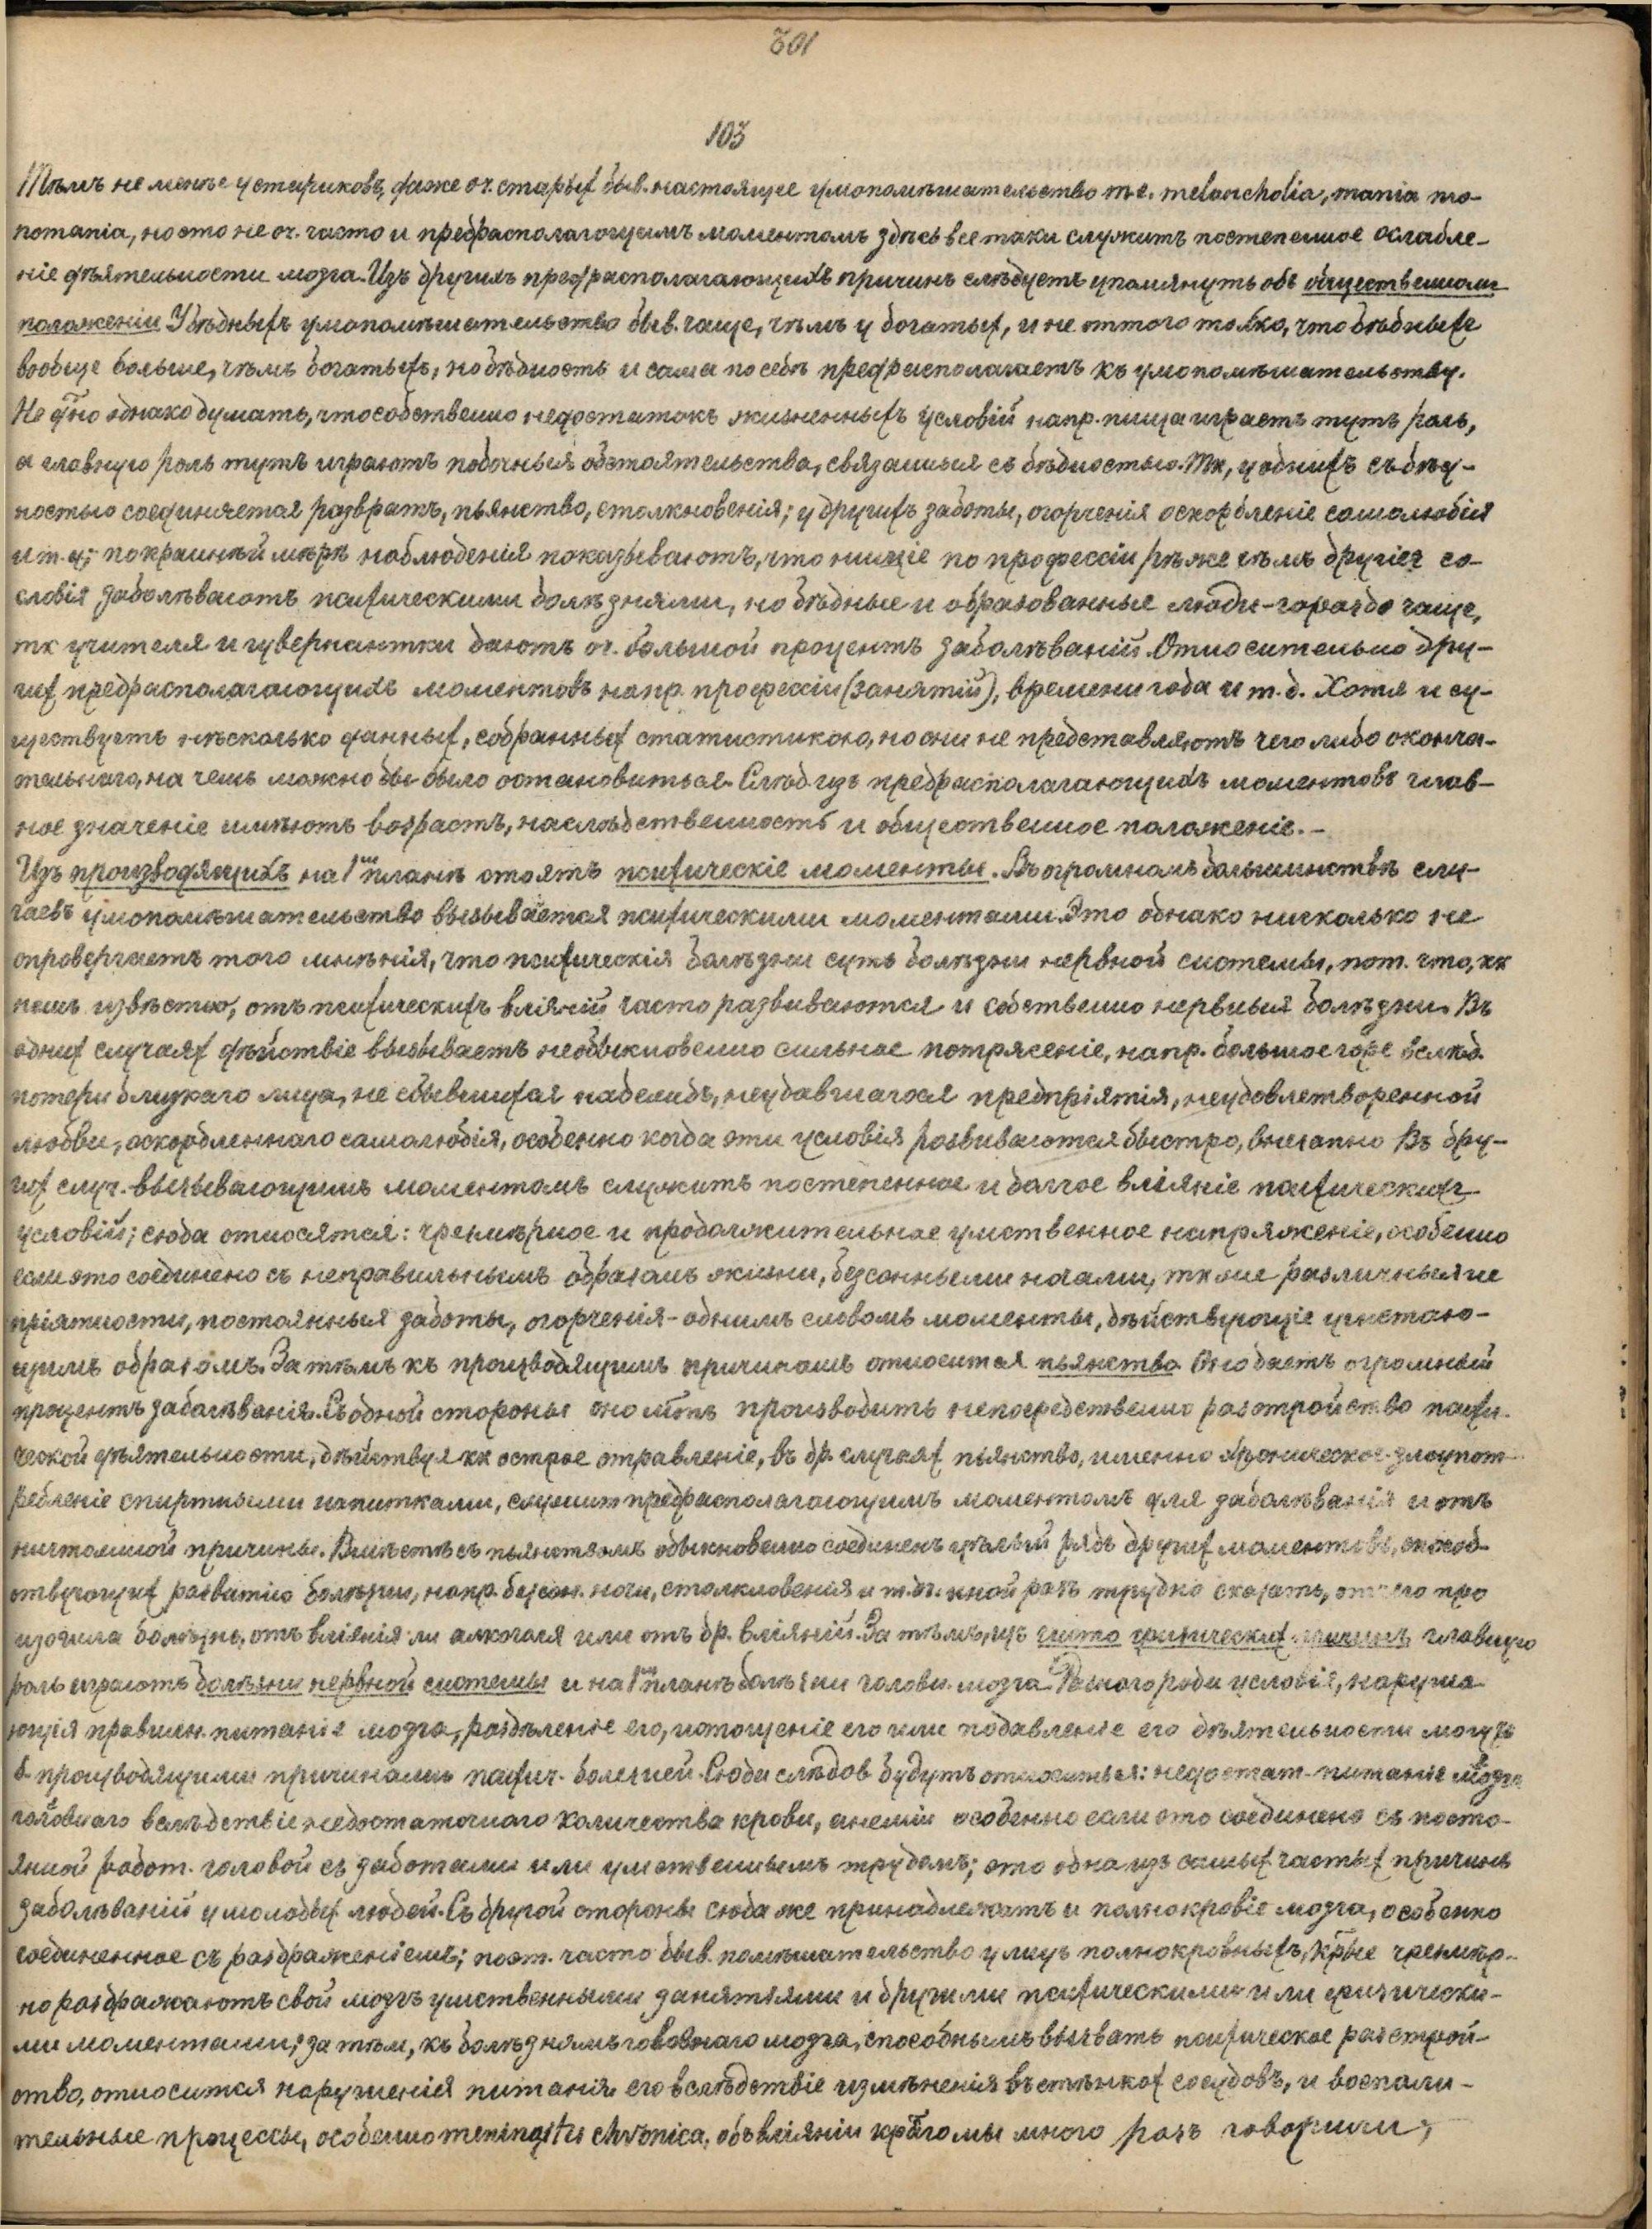 301
103
Тѣмъ не менѣе у стариковъ, даже оч. старых быв. настоящее умопомѣшательство т.е. melancholia, mania mo-
nomania, но это не оч. часто и предрасполагающимъ моментомъ здѣсь все таки служитъ постепенное ослабле-
ніе дѣятельности мозга. Изъ другихъ предрасполагающихъ причинъ слѣдуетъ упомянуть объ общественном
положеніи У бѣдныхъ умопомѣшательство быв. чаще, чѣмъ у богатых, и не оттого только, что бѣдныхъ
вообще больше, чѣмъ богатыхъ, но бѣдность и сама по себѣ предрасполагаетъ къ умопомѣшательству.
Не дно однако думать, что собственно недостатокъ жизненныхъ условій напр. пища играетъ тутъ роль,
а главную роль тутъ играютъ побочныя обстоятельства, связанныя съ бѣдностью. Тк, у однихъ съ бѣд-
ностью соединяется развратъ, пьянство, столкновенія; у другихъ заботы, огорченія оскорбленіе самолюбія
и т. д; по крайней мѣрѣ наблюденія показываютъ, что нищіе по профессіи рѣже чѣмъ другіе со-
словія заболѣваютъ психическими болѣзнями, но бѣдные и образованные люди - гораздо чаще,
тк учителя и гувернантки даютъ оч. большой процентъ заболѣваній. Относительно дру-
гих предрасполагающихъ моментовъ напр. профессіи (занятій), времени года и т. д. Хотя и су-
ществуетъ нѣсколько данных, собранных статистикою, но они не представляютъ чего либо оконча-
тельнаго, на чемъ можно бы было остановиться. Слѣд. изъ предрасполагающихъ моментовъ глав-
ное значеніе имѣютъ возрастъ, наслѣдственность и общественное положеніе. -
Изъ производящихъ на 1мъ планѣ стоятъ психическіе моменты. Въ огромномъ большинствѣ слу-
чаевъ умопомѣшательство вызывается психическими моментами. Это однако нисколько не
опровергаетъ того мнѣнія, что психическія болѣзни суть болѣзни нервной системы, пот. что, кк
намъ извѣстно, отъ психическихъ вліяній часто развиваются и собственно нервныя болѣзни. Въ
одних случаях дѣйствіе вызываетъ необыкновенно сильное потрясеніе, напр. большое горе вслѣд.
потери близкаго лица, не сбывшихся надеждъ, неудавшагося предпріятія, неудовлетворенной
любви, оскорбленнаго самолюбія, особенно когда эти условія развиваются быстро, внезапно Въ дру-
гих случ. вызывающимъ моментомъ служитъ постепенное и долгое вліяніе психическихъ
условій; сюда относятся: чрезмѣрное и продолжительное умственное напряженіе, особенно
если это соединено съ неправильнымъ образомъ жизни, безсонными ночами, ткже различныя не
пріятности, постоянныя заботы, огорченія - однимъ словомъ моменты, дѣйствующіе угнетаю-
щимъ образомъ. За тѣмъ къ производящимъ причинамъ относится пьянство Оно даетъ огромный
процентъ заболѣванія. Съ одной стороны оно производитъ непосредственно разстройство психи-
ческой дѣятельности, дѣйствуя кк острое отравленіе, въ др. случаях пьянство, именно хроническое злоупот-
ребленіе спиртными напитками, служит предрасполагающимъ моментомъ для заболѣванія и отъ
ничтожной причины. Вмѣстѣ съ пьянствомъ обыкновенно соединенъ цѣлый рядъ других моментовъ, способ-
ствующих развитію болѣзни, напр. безсон. ночи, столкновенія и т.д. иной разъ трудно сказать, отчего про
изошла болѣзнь, отъ вліянія ли алкоголя или отъ др. вліяній. За тѣмъ, изъ чисто физических причинъ главную
роль играютъ болѣзни нервной системы и на 1мъ планѣ болѣзни головн. мозга. Разнаго рода условія, наруша
ющія правильн. питаніе мозга, раздѣленіе его, истощеніе его или подавленіе его дѣятельности могутъ
б. производящими причинами психич. болезней. Сюда слѣдов будутъ относиться: недостат. питаніе мозга
головнаго вслѣдствіе недостаточнаго количества крови, анеміи особенно если это соединено съ посто-
янной работ. головой съ заботами или умственнымъ трудомъ; это одна изъ самых частых причинъ
заболѣваній у молодых людей. Съ другой стороны сюда же принадлежатъ и полнокровіе мозга, особенно
соединенное съ раздраженіемъ; поэт. часто быв. помѣшательство у лицъ полнокровныхъ, крые чрезмѣр-
но раздражаютъ свой мозгъ умственными занятіями и другими психическими или физически-
ми моментами; за тѣм, къ болѣзнямъ головнаго мозга, способнымъ вызвать психическое разстрой-
ство, относится нарушенія питанія его вслѣдствіе измѣненія въ стѣнках сосудовъ, и воспали-
тельные процессы, особенно meningitis chronica, объ вліяніи крго мы много разъ говорили;